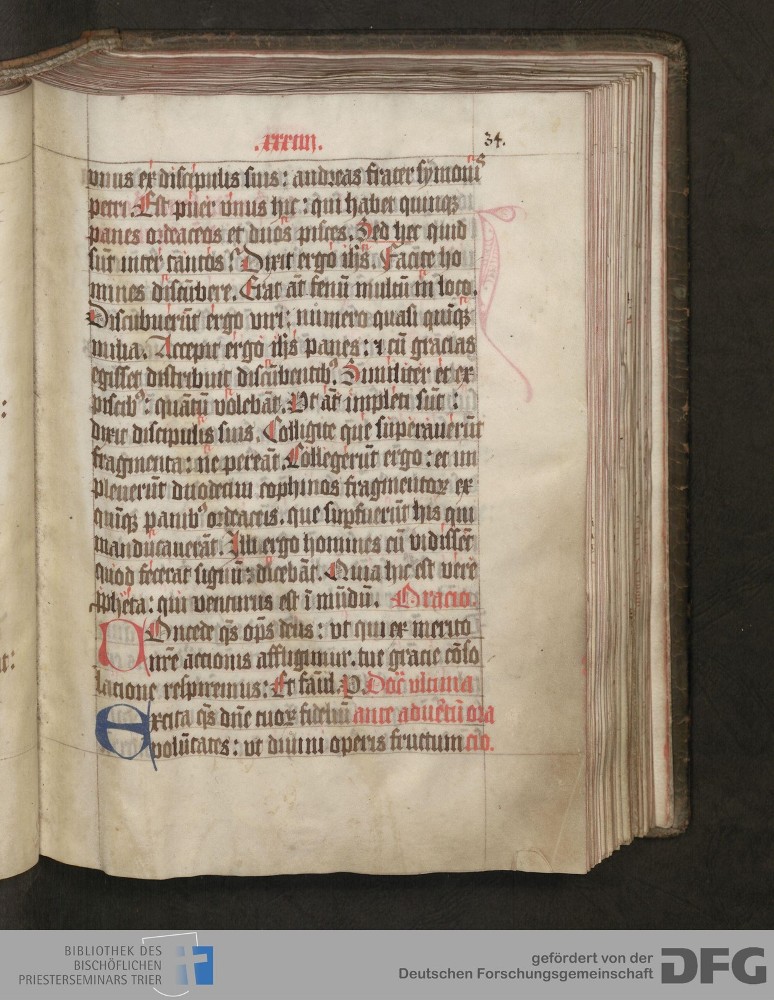 .xxxiiij. 34.
vnus ex discipulis suis: andreas frater symonis
petri. Est puer vnus hic: qui habet quinqꝫ
panes ordeaceos et duos pisces. Sed hec quid
sūt inter tantos? Dixit ergo ihs̄. Facite ho
mines discūbere. Erat āt fenū multū in loco.
Discubuerūt ergo viri: numero quasi quīqꝫ
milia. Accepit ergo ihs̄ panes: ⁊ cū gracias
egisset distribuit discūbentibꝰ. Similiter et ex
piscibꝰ: quātū volebāt. Vt āt impleti sūt:
dixit discipulis suis. Colligite que superauerūt
fragmenta: ne pereāt. Collegerūt ergo: et im
pleuerūt duodecim cophinos fragmentoꝝ ex
quīqꝫ panibꝰ ordeaceis. que supfuerūt his qui
manducauerāt. Illi ergo homines cū vidissēt
quod fecerat signū: dicebāt. Quia hic est vere
ꝓpheta: qui venturus est ī mūdū. Oracio.
Concede qs̄ op̄s deus: vt qui ex merito
nr̄e actionis affligimur. tue gracie cōso
lacione respiremus: Et fāul. P. Doc̄ vltima
Excita qs̄ dn̄e tuoꝝ fidelium ante aduētū ora
volūtates: vt diuini operis fructum cio.
BIBLIOTHEK DES
BISCHÖFLICHEN
PRIESTERSEMINARS TRIER
gefördert von der
Deutschen Forschungsgemeinschaft
DFG